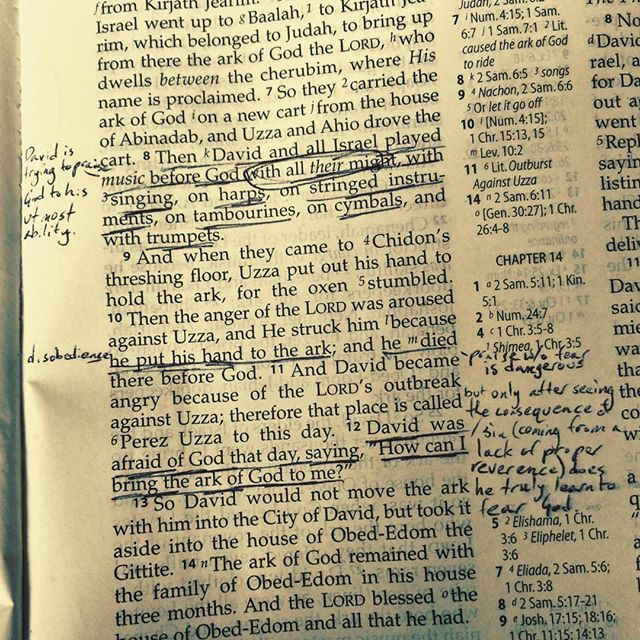 from Kirjath Jearim.
Israel went up to gBaalah,1 to Kirjath Jea-
rim, which belonged to Judah, to bring up
from there the ark of God the LORD, hwho
dwells between the cherubim, where His
name is proclaimed. 7 So they 2carried the
ark of God ion a new cart jfrom the house
of Abinadab, and Uzza and Ahio drove the
cart. 8 Then kDavid and all Israel played
music before God with all their might, with
3singing, on harps, on stringed instru-
ments, on tambourines, on cymbals, and
with trumpets.
9 And when they came to 4Chidon's
threshing floor, Uzza put out his hand to
hold the ark, for the oxen 5stumbled.
10 Then the anger of the LORD was aroused
against Uzza, and He struck him lbecause
he put his hand to the ark; and he mdied
there before God. 11 And David became
angry because of the LORD's outbreak
against Uzza; therefore that place is called
6Perez Uzza to this day. 12 David was
afraid of God that day, saying, "How can I
bring the ark of God to me?"
13 So David would not move the ark
with him into the City of David, but took it
aside into the house of Obed-Edom the
Gittite. 14 nThe ark of God remained with
the family of Obed-Edom in his house
three months. And the LORD blessed othe
house of Obed-Edom and all that he had.
David is
trying to praise
God to his
utmost
ability.
disobedience
Judah, 2 Sam.
7 i Num. 4:15; 1 Sam.
6:7 j 1 Sam. 7:1 2 Lit.
caused the ark of God
to ride
8 k 2 Sam. 6:5 3 songs
9 4 Nachon, 2 Sam. 6:6
5 Or let it go off
10 l [Num. 4:15];
1 Chr. 15:13, 15
m Lev. 10:2
11 6 Lit. Outburst
Against Uzza
14 n 2 Sam. 6:11
o [Gen. 30:27]; 1 Chr.
26:4-8
CHAPTER 14
1 a 2 Sam. 5:11; 1 Kin.
5:1
2 b Num. 24:7
4 c 1 Chr. 3:5-8
1 Shimea, 1 Chr. 3:5
praise w/o fear
is dangerous
but only after seeing
the consequence of
sin (coming from a
lack of proper
reverence) does
he truly learn to
fear God
5 2 Elishama, 1 Chr.
3:6 3 Eliphelet, 1 Chr.
3:6
7 4 Eliada, 2 Sam. 5:6;
1 Chr. 3:8
8 d 2 Sam. 5:17-21
9 e Josh. 17:15; 18:16;
1 Chr. 11:15; 14:13